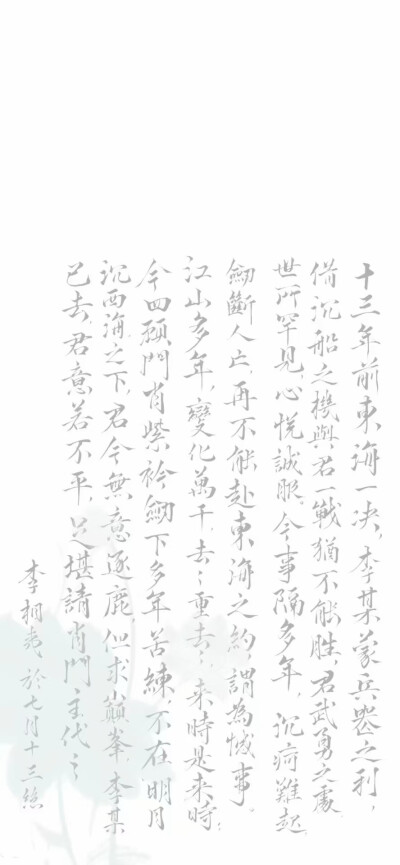 十三年前東海一决，李某蒙兵器之利，
借沉船之機與君一戰猶不能勝，君武勇之處，
世所罕見，心悅誠服。今事隔多年，沉疴難起，
劒斷人亡，再不能赴東海之約，謂為憾事。
江山多年，變化萬千，去去重去去，来時是来時，
今四顾門肖紫衿劒下多年苦練，不在明月
沉西海之下，君今無意逐鹿，但求巔峯，李某
已去，君意若不平，足堪請肖門主代之。
李相夷 於七月十三絕